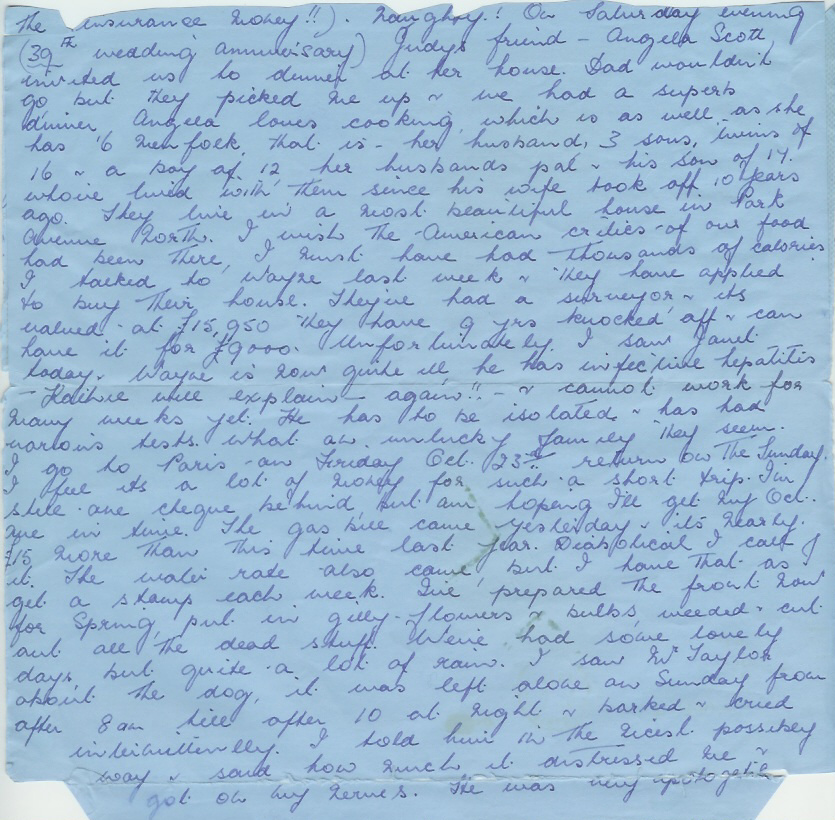 the insurance money!!). Naughty! On Saturday evening
(39th wedding anniversary) Judys friend – Angela Scott
invited us to dinner at her house. Dad wouldn't
go but they picked me up & we had a superb
dinner, Angela loves cooking, which is as well as she
has 6 menfolk, that is – her husband, 3 sons, twins of
16 & a boy of 12 her husbands pal & his son of 17.
whove lived with them since his wife took off 10 years
ago. They live in a most beautiful house in Park
Avenue North. I wish the American critics of our food
had been there, I must have had thousands of calories
I talked to Wayne last week & they have applied
to buy their house. They've had a surveyor & its
valued at £15,950 they have 9 yrs knocked off & can
have it for £9000. Unfortunately I saw Janet
today. Wayne is now quite ill he has infective hepatitis
– Kathie will explain – again!! – & cannot work for
many weeks yet. He has to be isolated & has had
various tests. What an unlucky family they seem.
I go to Paris on Friday Oct. 23rd return on the Sunday.
I feel its a lot of money for such a short trip. I'm
still one cheque behind, but am hoping I'll get my Oct.
one in time. The gas bill came yesterday & its nearly
£15 more than this time last year. Diabolical I call
it. The water rate also came, but I have that as I
get a stamp each week. I've prepared the front now
for Spring, put in gilly-flowers & bulbs, weeded & cut
out all the dead stuff. We've had some lovely
days but quite a lot of rain. I saw Mr Taylor
about the dog, it was left alone on Sunday from
after 8 am till after 10 at night & barked & cried
intermittently. I told him in the nicest possible
way & said how much it distressed me &
got on my nerves. He was very apologetic